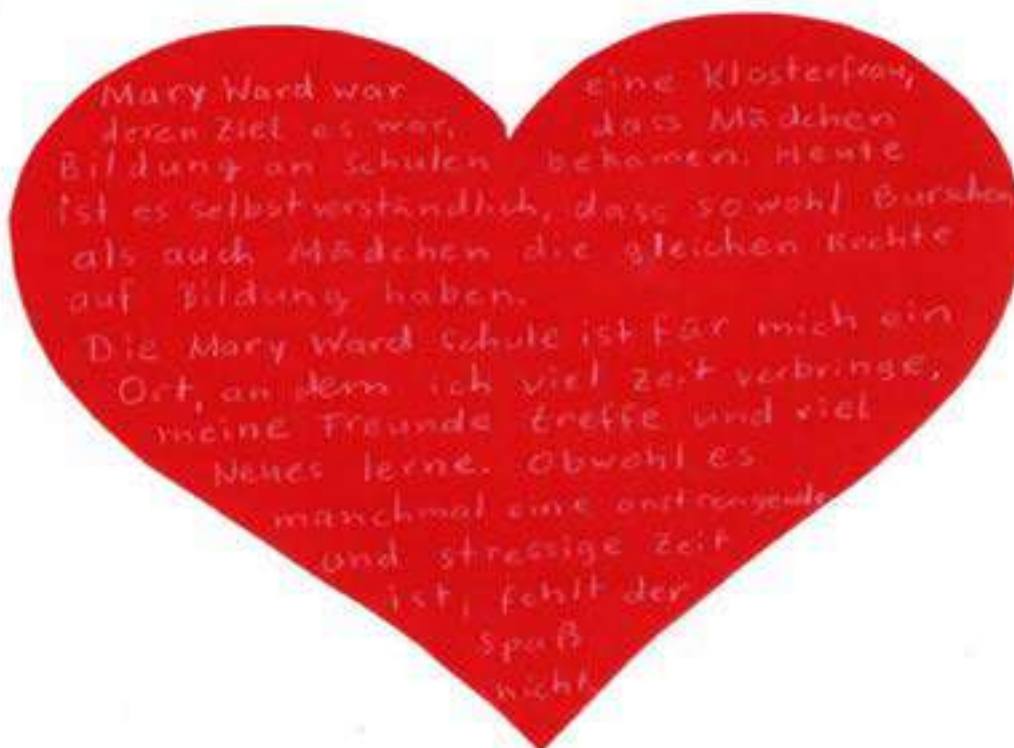 Mary Ward war eine Klosterfrau,
deren Ziel es war, dass Mädchen
Bildung an Schulen bekamen. Heute
ist es selbstverständlich, dass sowohl Burschen
als auch Mädchen die gleichen Rechte
auf Bildung haben.
Die Mary Ward Schule ist für mich ein
Ort, an dem ich viel Zeit verbringe,
meine Freunde treffe und viel
Neues lerne. Obwohl es
manchmal eine anstrengende
und stressige Zeit
ist, fehlt der
Spaß
nicht.